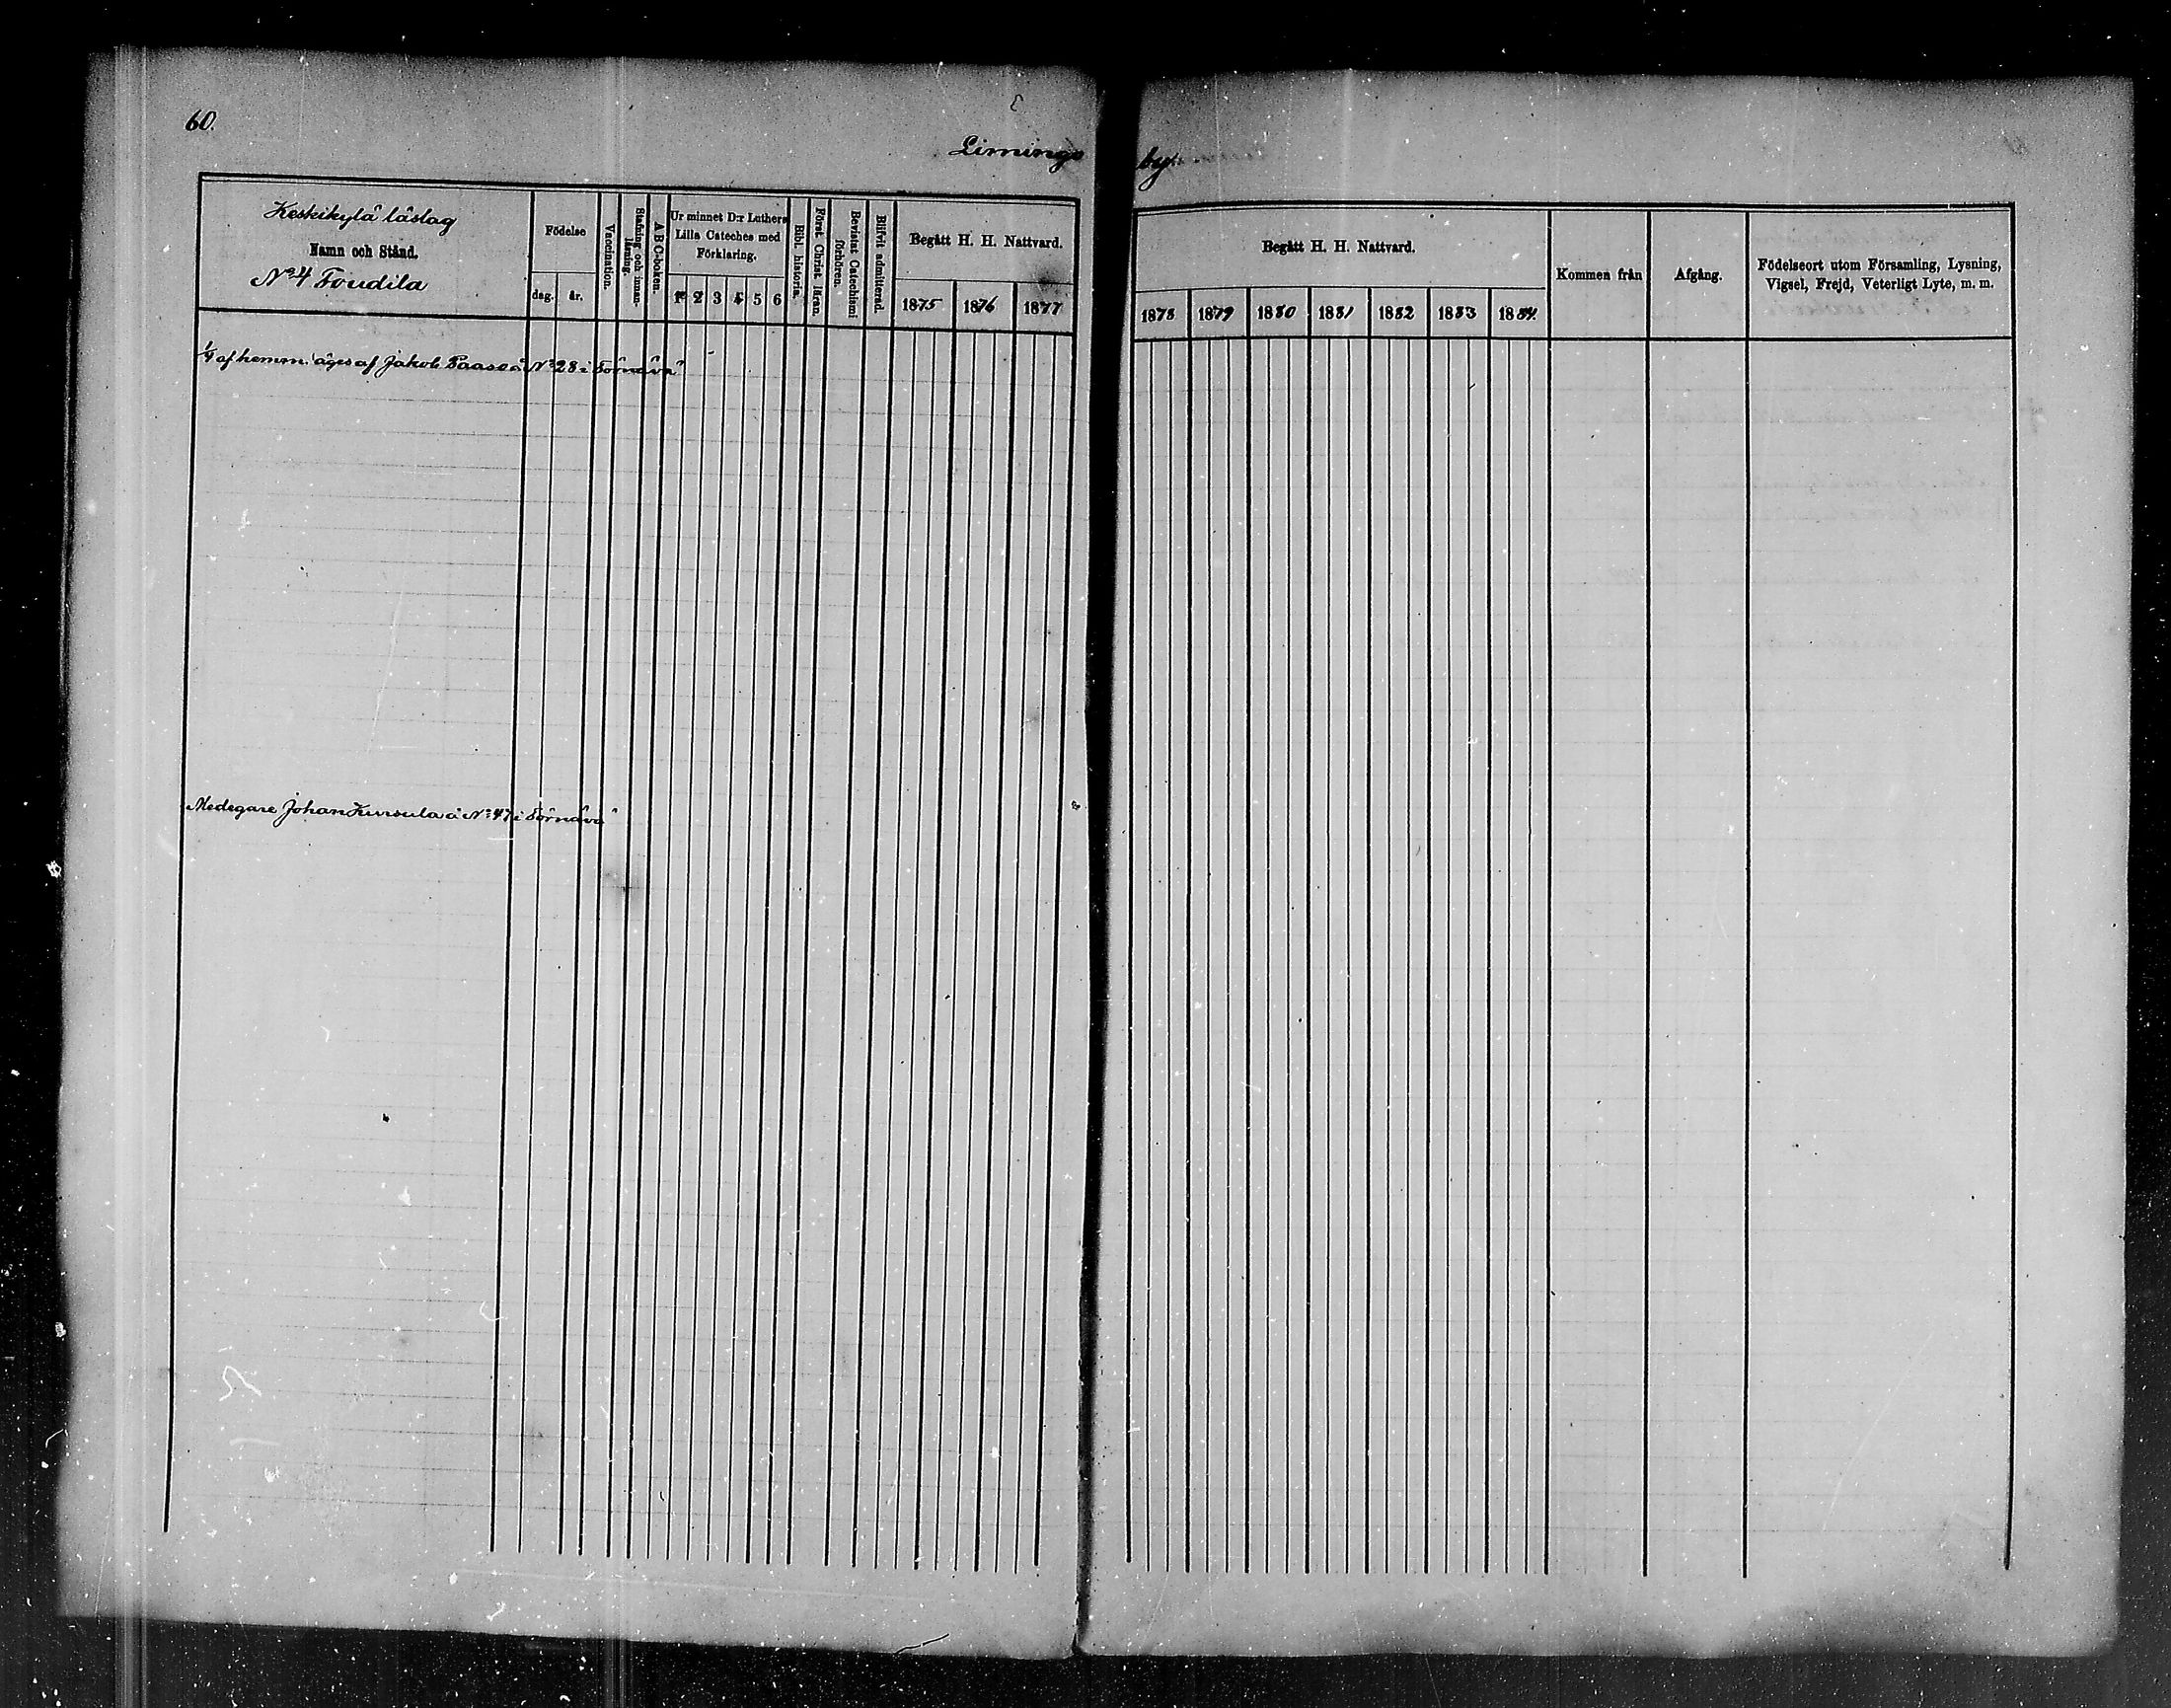 60.
Limingo by.
Keskikylä läslag
Namn och Stånd.
No 4 Foudila
Födelse
dag.
år.
Vaccination.
Stafning och innan-läsning.
A B C-boken.
Ur minnet D:r Luthers
Lilla Cateches med
Förklaring.
1 2 3 4 5 6
Bibl. historia.
Först. Christ. läran.
Bevistat Catechismi förhören.
Blifvit admitterad.
Begått H. H. Nattvard.
1875 1876 1877
Begått H. H. Nattvard.
1878 1879 1880 1881 1882 1883 1884.
Kommen från
Afgång.
Födelseort utom Församling, Lysning,
Vigsel, Frejd, Veterligt Lyte, m. m.
af hemm. äges af Jakob Paaso å No 28 i Törnävä
Medegare Johan Kursula å No 47 i Törnävä